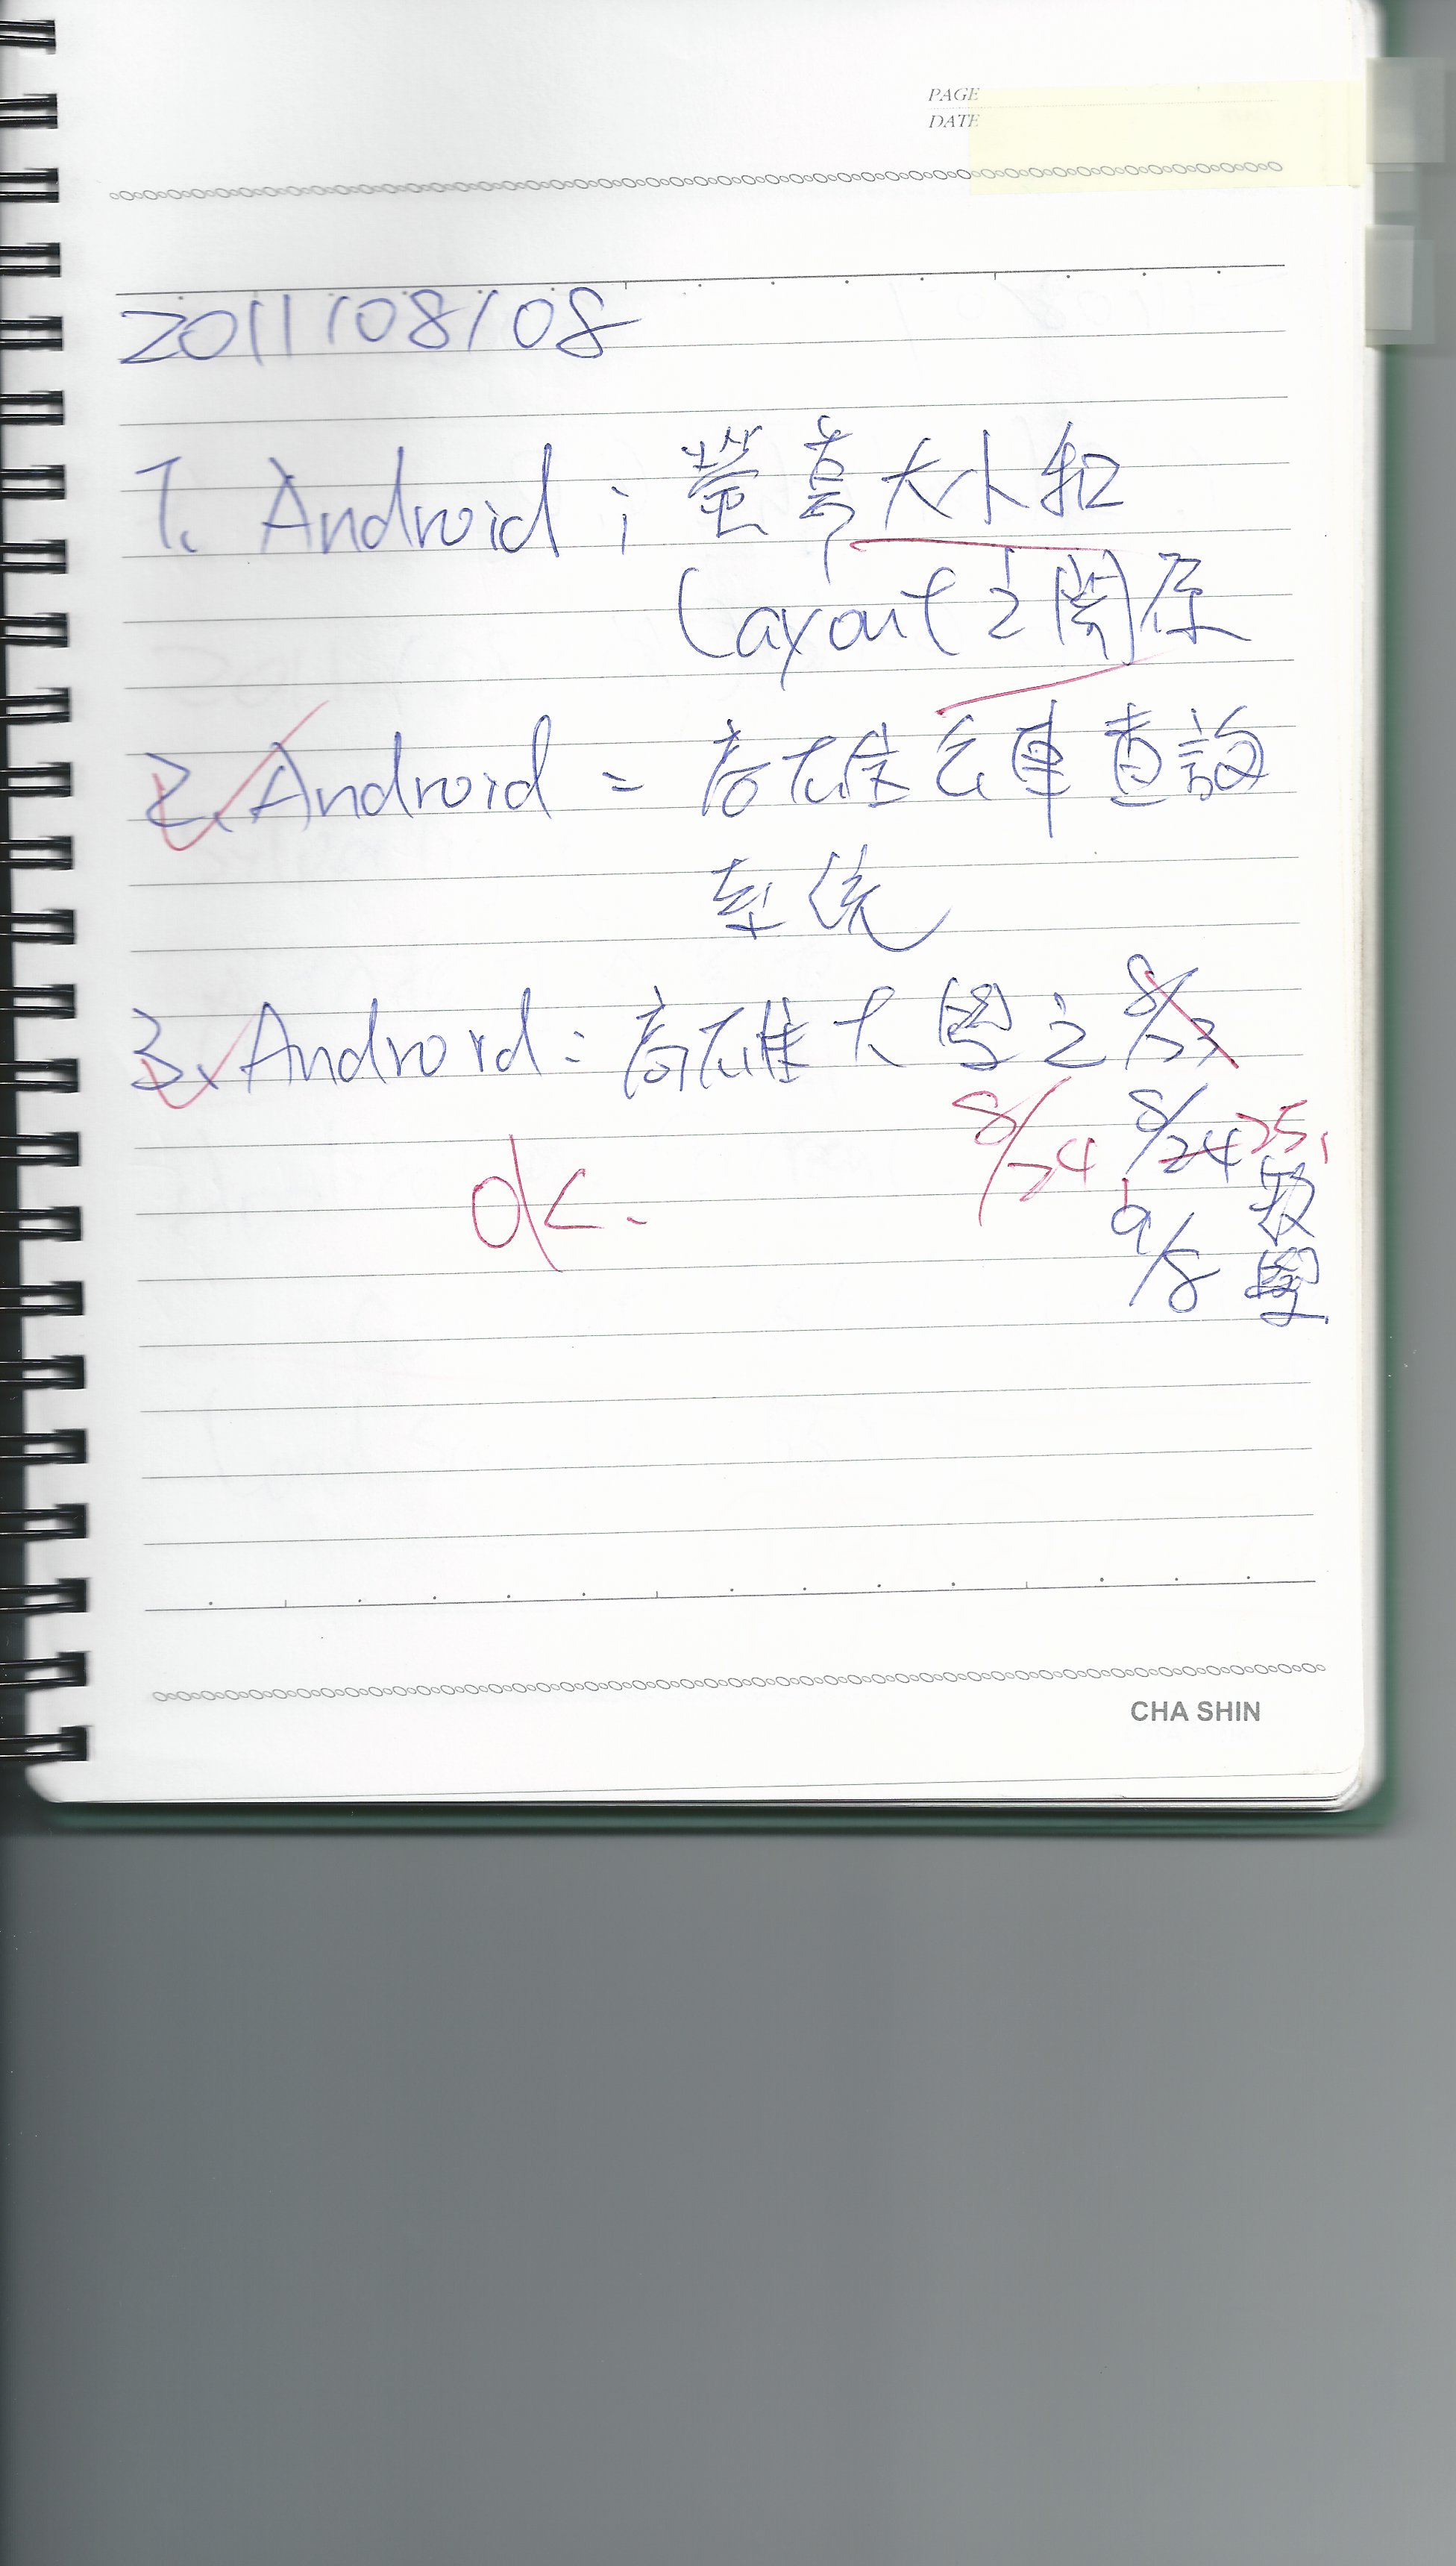 PAGE
DATE
2011/08/08
1. Android: 螢幕大小和
Layout之關係
2. Android: 高雄公車查詢
系統
3. Android: 高雄大學之 8/23
8/24 8/24 25,
9/8 教
學
ok.
CHA SHIN